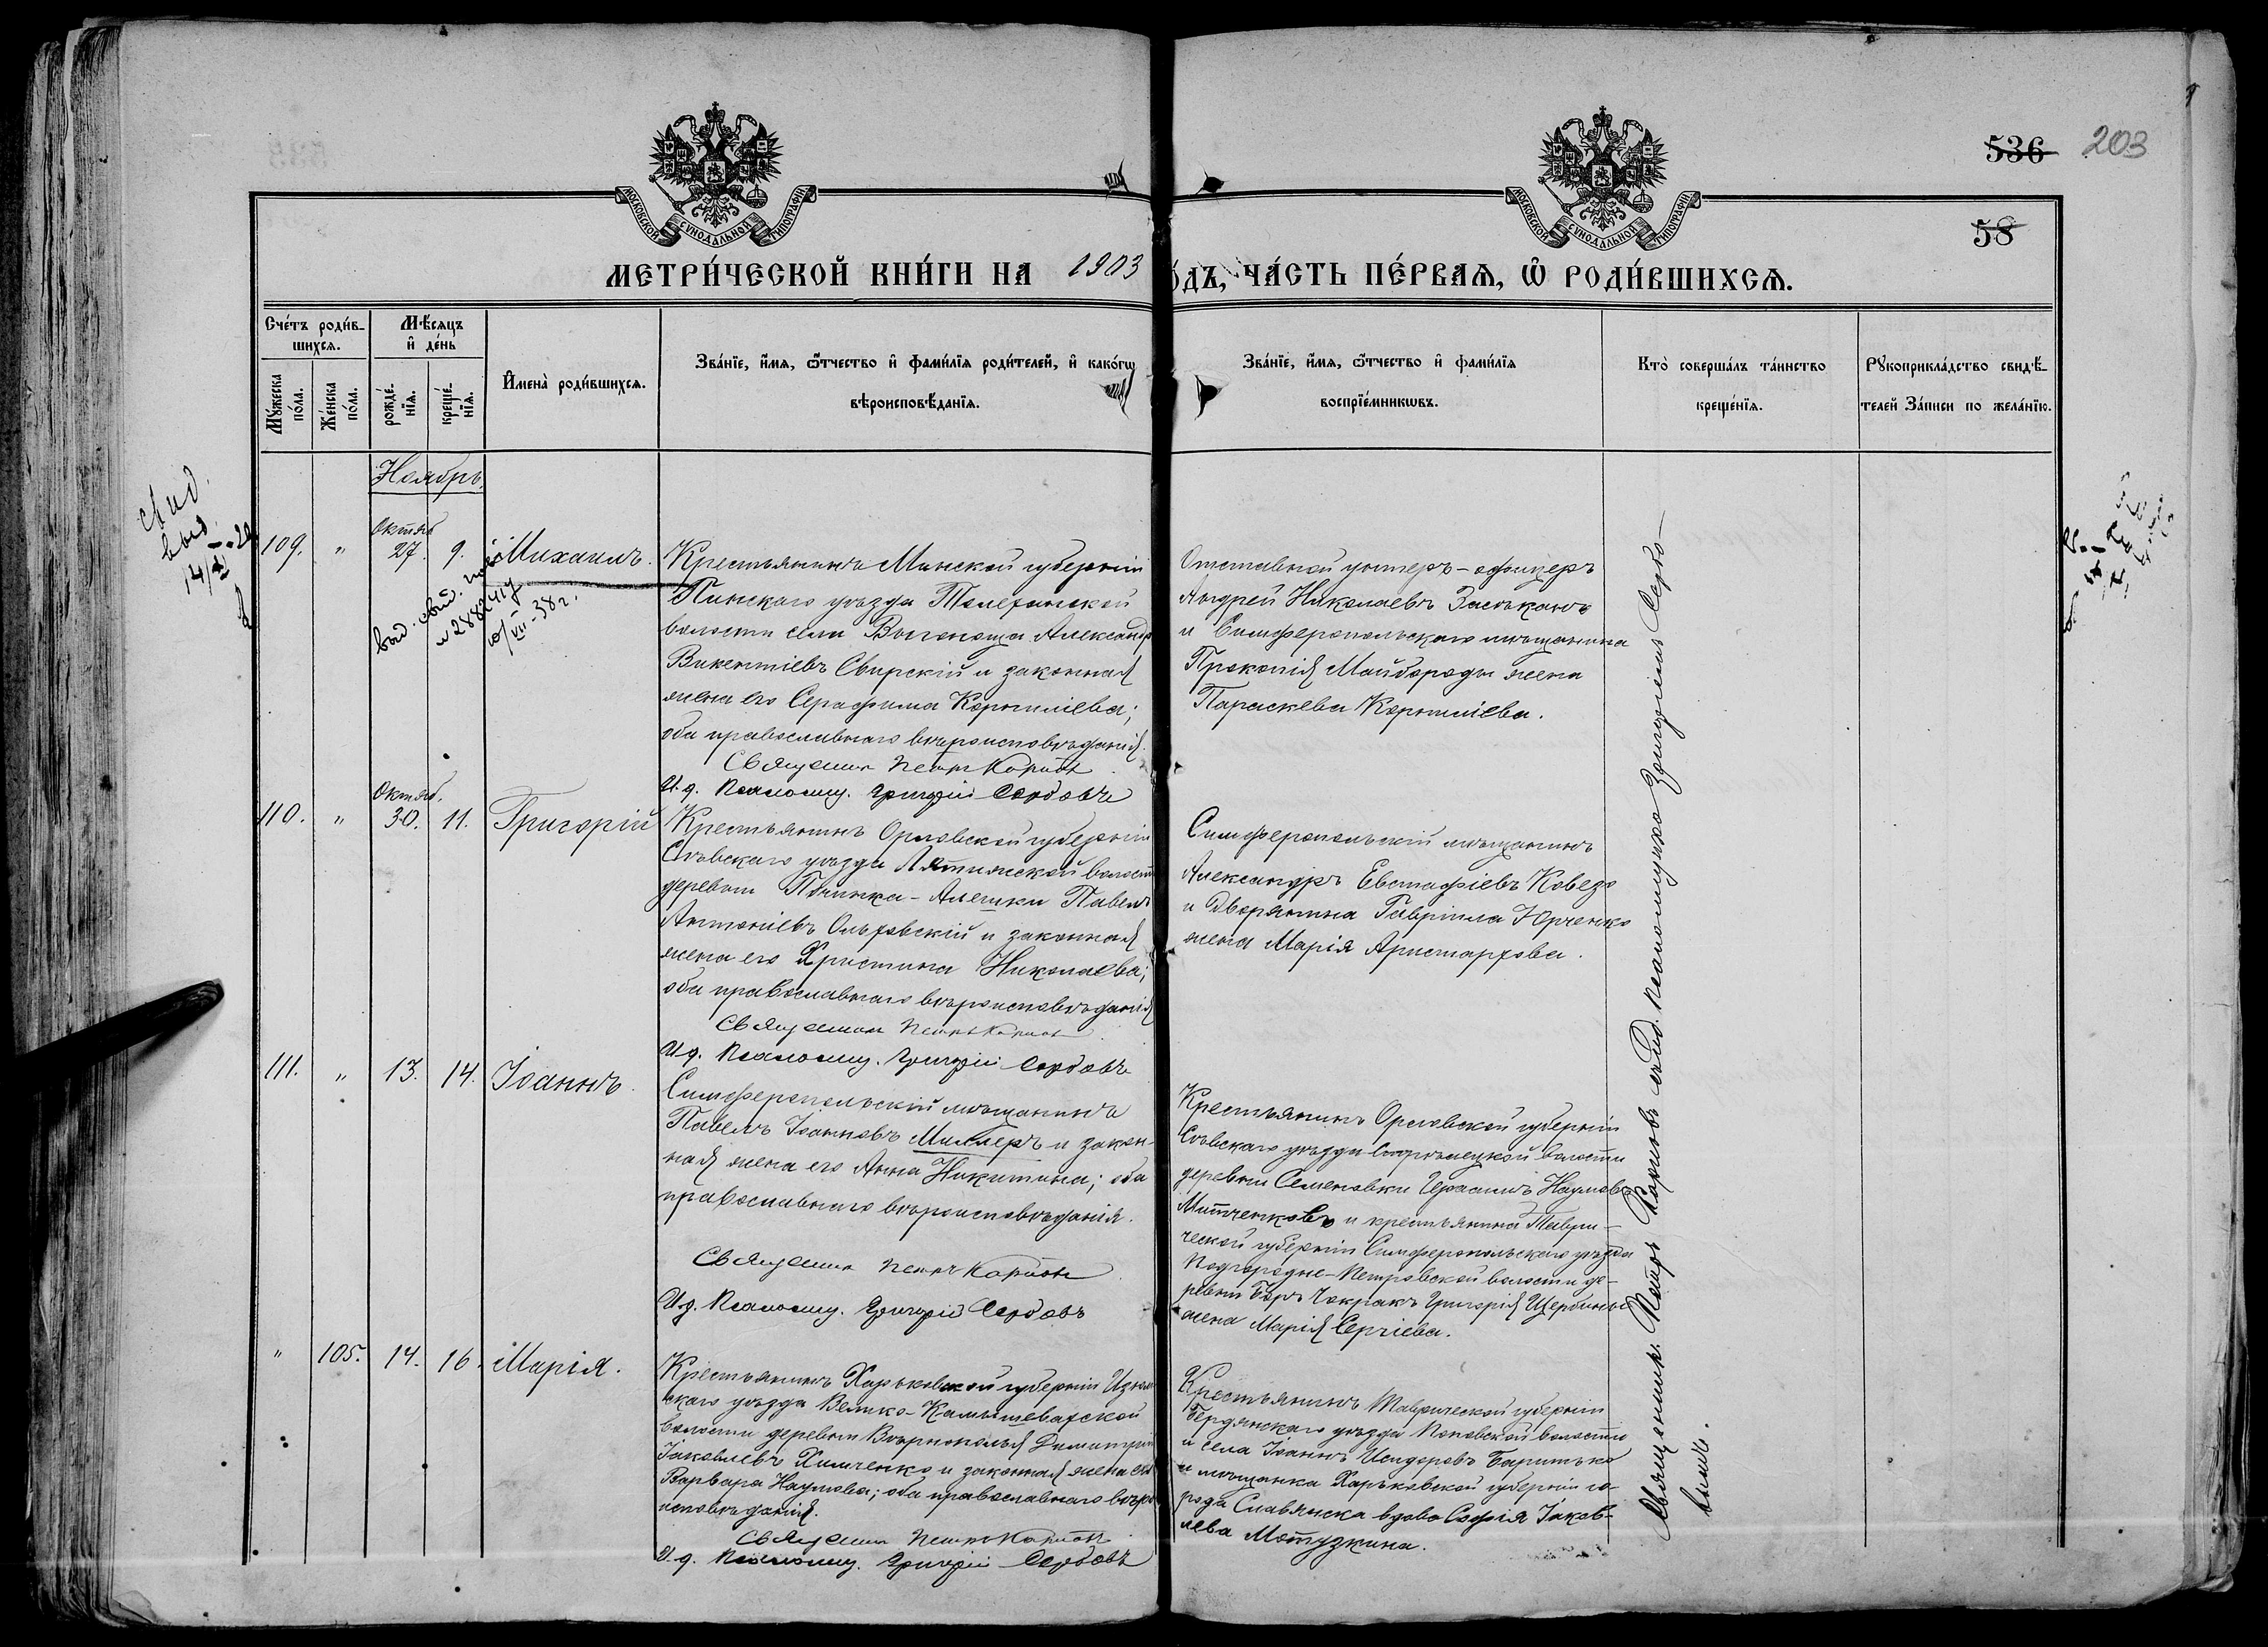 536 203
58
МОСКОВСКОЙ СѴНОДАЛЬНОЙ ТИПОГРАФІИ
МОСКОВСКОЙ СѴНОДАЛЬНОЙ ТИПОГРАФІИ
МЕТРИ́ЧЕСКОЙ КНИ́ГИ НА 1903
о́дъ, ЧА́СТЬ ПЕ́РВАѦ, Ѡ РОДИ́ВШИХСѦ.
Сче́тъ роди́в-
шихсѧ.
Мꙋжеска по́ла.
Же́нска по́ла.
Мѣ́сѧцъ
и҆ де́нь
рожде́-
нїѧ.
креще́-
нїѧ.
И҆мена̀ роди́вшихсѧ.
Зва́нїе, и҆́мѧ, ѻ҆́тчество и҆ фами́лїѧ роди́телей, и҆ како́гѡ
вѣроисповѣ́данїѧ.
Зва́нїе, и҆́мѧ, ѻ҆́тчество и҆ фами́лїѧ
воспрїе́мникѡвъ.
Кто̀ соверша́лъ та́инство
креще́нїѧ.
Рꙋкоприкла́дство свидѣ́-
телей За́писи по жела́нїю.
Ноябрь.
109. " Октяб 27. 9. Михаилъ.
выд. свид.
10/VII-38г.
Крестьянинъ Минской губерніи
Пинскаго уѣзда Телеханской
волости села Выгонощи Александръ
Викентіевъ Свирскій и законная
жена его Серафима Корниліева;
оба православнаго вѣроисповѣданія.
Священник Петръ Карпов
И.д. Псаломщ. Григорій Сербовъ
Отставной унтеръ-офицеръ
Андрей Николаевъ
и Симферопольскаго мѣщанина
Прокопія Майбороды жена
Параскева Корниліева.
110. " Октяб. 30. 11. Григорій
Крестьянинъ Орловской губерніи
Сѣвскаго уѣзда волости
деревни Павелъ
Антоніевъ Ольховскій и законная
жена его Христина Николаева;
оба православнаго вѣроисповѣданія
Священник Петръ Карпов
И.д. Псаломщ. Григорій Сербовъ
Симферопольскій мѣщанинъ
Александръ Евстафіевъ
и Дворянина Гавріила Юрченко
жена Марія Аристархова.
111. " 13. 14. Іоаннъ.
Симферопольскій мѣщанинъ
Павелъ Іоанновъ Миллеръ и закон-
ная жена его Анна Никитина; оба
православнаго вѣроисповѣданія.
Священник Петръ Карпов
И.д. Псаломщ. Григорій Сербовъ
Крестьянинъ Орловской губерніи
Сѣвскаго уѣзда волости
деревни Семеновки Герасимъ Наумовъ
Митченковъ и крестьянина Таври-
ческой губерніи Симферопольскаго уѣзда
Подгородне-Петровской волости де-
ревни Чокракъ Григорія Щербины
жена Марія Сергіева.
" 105. 14. 16. Марія.
Крестьянинъ Харьковской губерніи Изюм
скаго уѣзда Велико-Камышевахской
волости деревни Вѣрнополья Димитрій
Іаковлевъ Химченко и законная жена его
Варвара Наумова; оба православнаго вѣро
исповѣданія.
Священник Петръ Карпов
И.д. Псаломщ. Григорій Сербовъ
Крестьянинъ Таврической губерніи
Бердянскаго уѣзда Поповской волости
и села Іоаннъ Исидоровъ
и мѣщанка Харьковской губерніи го-
рода Славянска вдова Софія Іаков-
лева Мотузкина.
Священник. Петръ Карповъ съ и.д. псаломщика Григоріемъ Сербо-
вымъ.